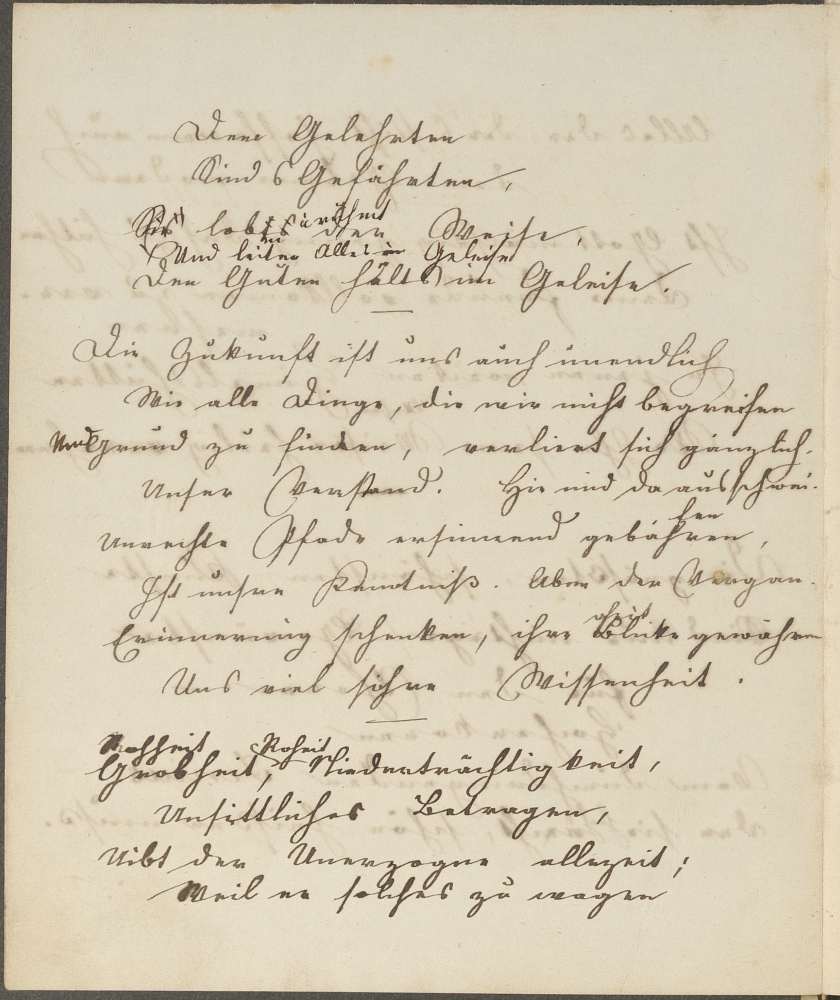 Dem Gelehrten
Sind s Gefährten,
Sie lobt der Weise,
Und leiten Alles im Geleise
Den Guten hälts im Geleise.
Die Zukunft ist uns auch unendlich
Wie alle Dinge, die wir nicht begreifen
Und Grund zu finden, verliert sich gänzlich.
Unser Verstand. Hie und da ausschwei-
fen
Unrechte Pfade ersinnend gebähren,
Ist unsre Kenntniß. Aber der Vergan-
genheit
Erinnerung schenken, ihre Blicke gewähren
Uns viel schöne Wissenheit.
Rohheit Roheit
Grobheit, Niederträchtigkeit,
Unsittliches Betragen,
Uibt der Unerzogne allezeit;
Weil er solches zu wagen